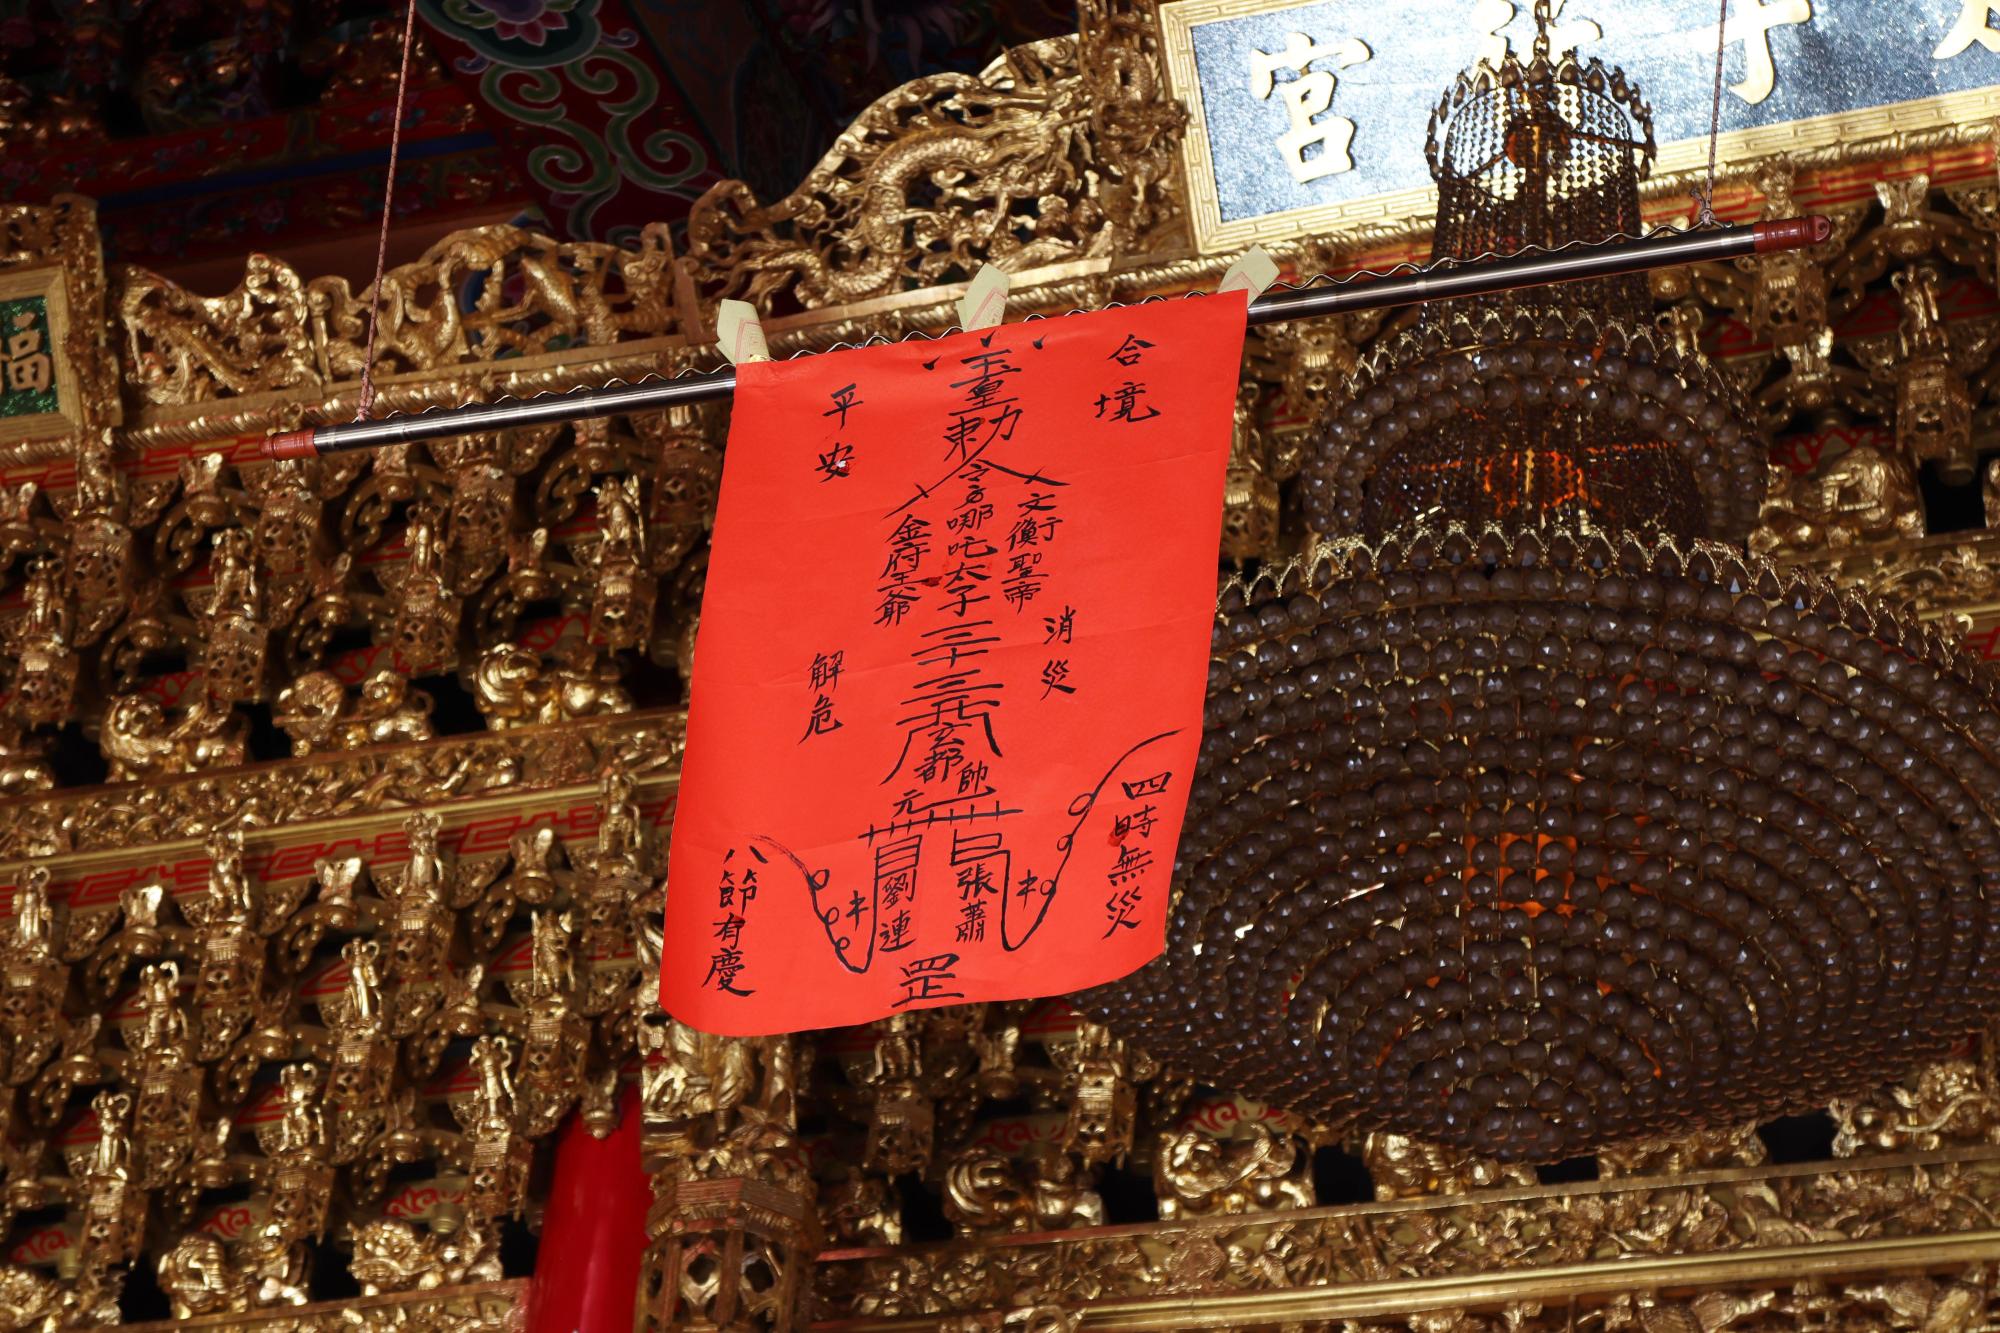 宮
福
合境
平安
玉皇
勅令
文衡聖帝
哪吒太子
金府王爺
消災
解危
三十三天
玄都
元帥
四時無災
八節有慶
張蕭
劉連
罡